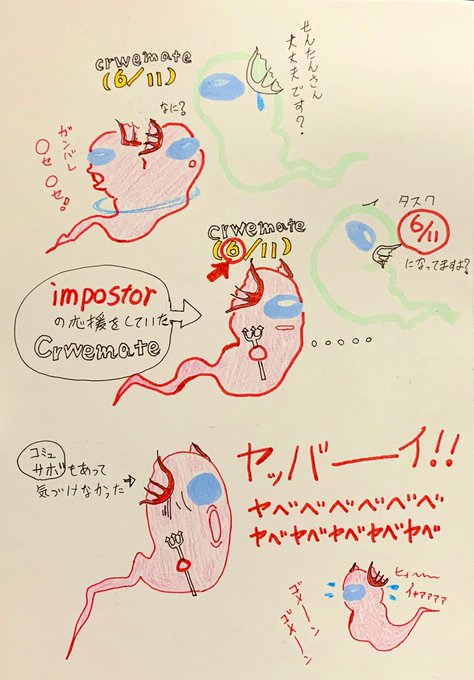 crwemate
(6/11)
せんたんさん
大丈夫です?
なに?
ガンバレ
〇セ〇セ!
crwemate
(6/11)
タスク
6/11
になってますよ?
impostor
の応援をしていた
Crwemate
.....
コミュ
サボもあって
気づけなかった→
ヤッバーーイ!!
ヤベベベベベベ
ヤベヤベヤベヤベヤベ
ヒィ〜〜
イヤアアアア
ゴメーン
ゴメーン